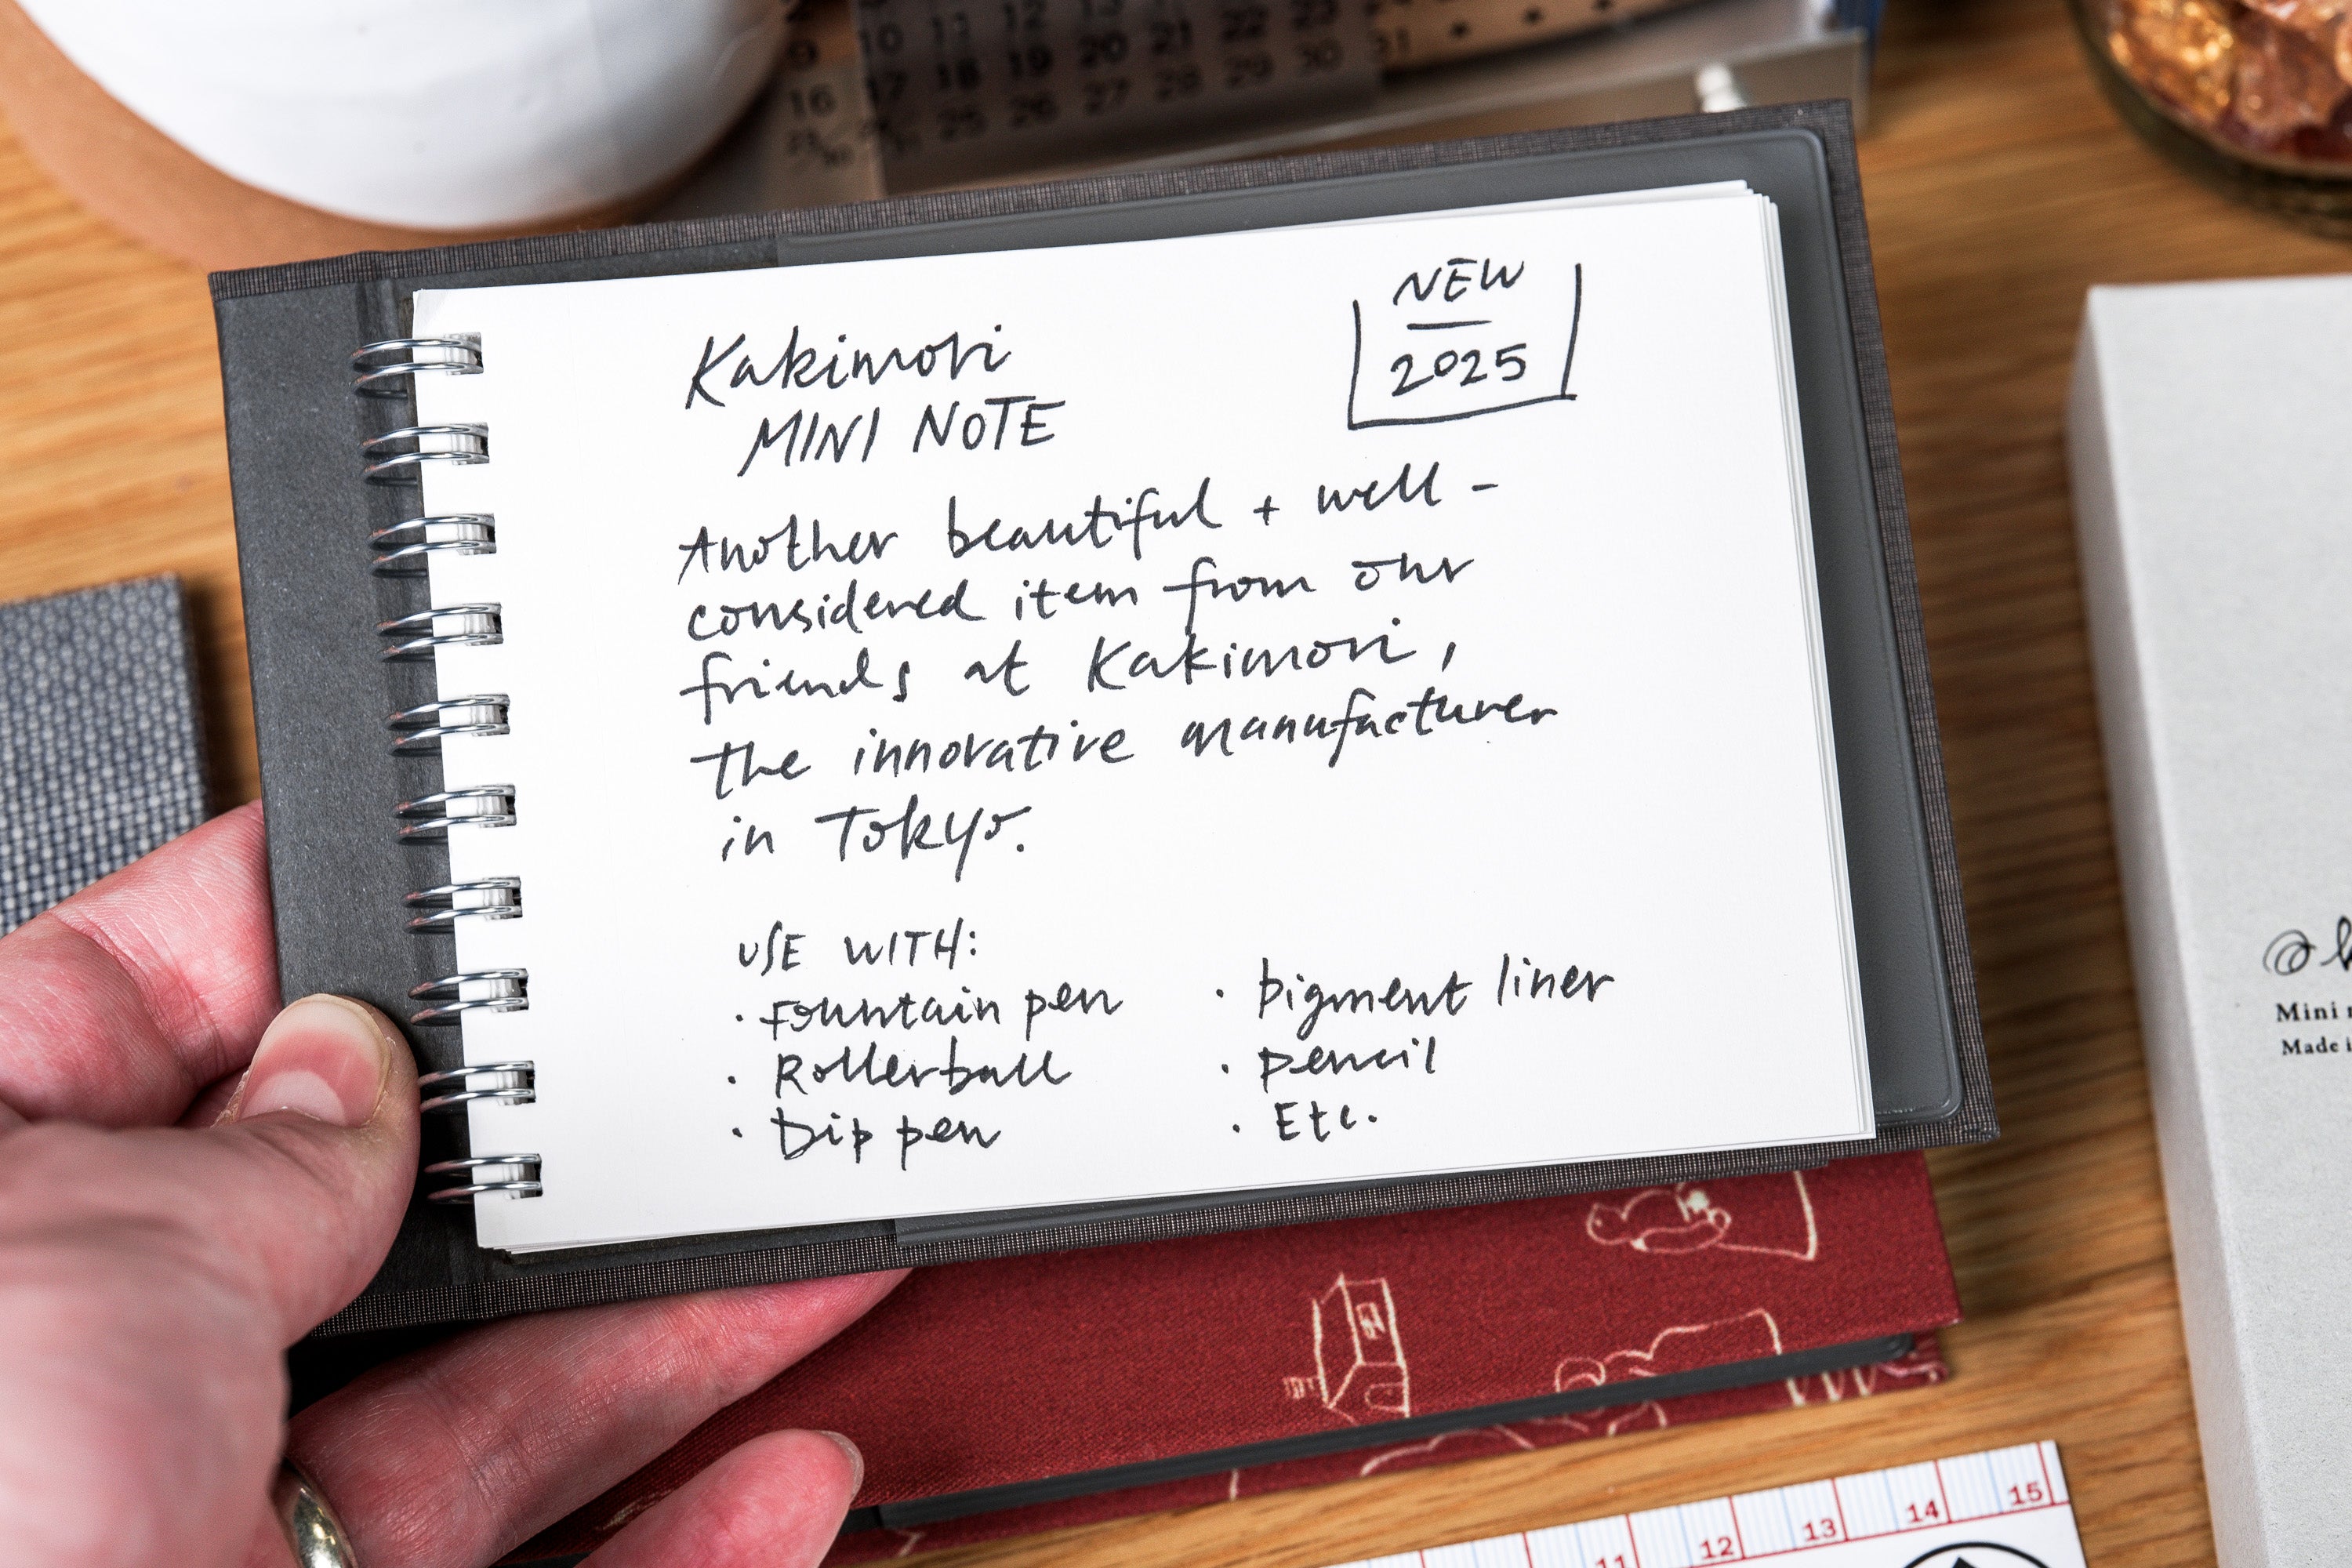 10 11 12 13
9 10 11 12 13 20 21 22 23 24
16 17 18 19 20 27 28 29 30 31
25 26
Kakimori
MINI NOTE
NEW
2025
Another beautiful + well-
considered item from our
friends at Kakimori,
the innovative manufacturer
in Tokyo.
USE WITH:
· Fountain pen
· Rollerball
· Dip pen
· pigment liner
· pencil
· Etc.
Mini
Made
11 12 13 14 15